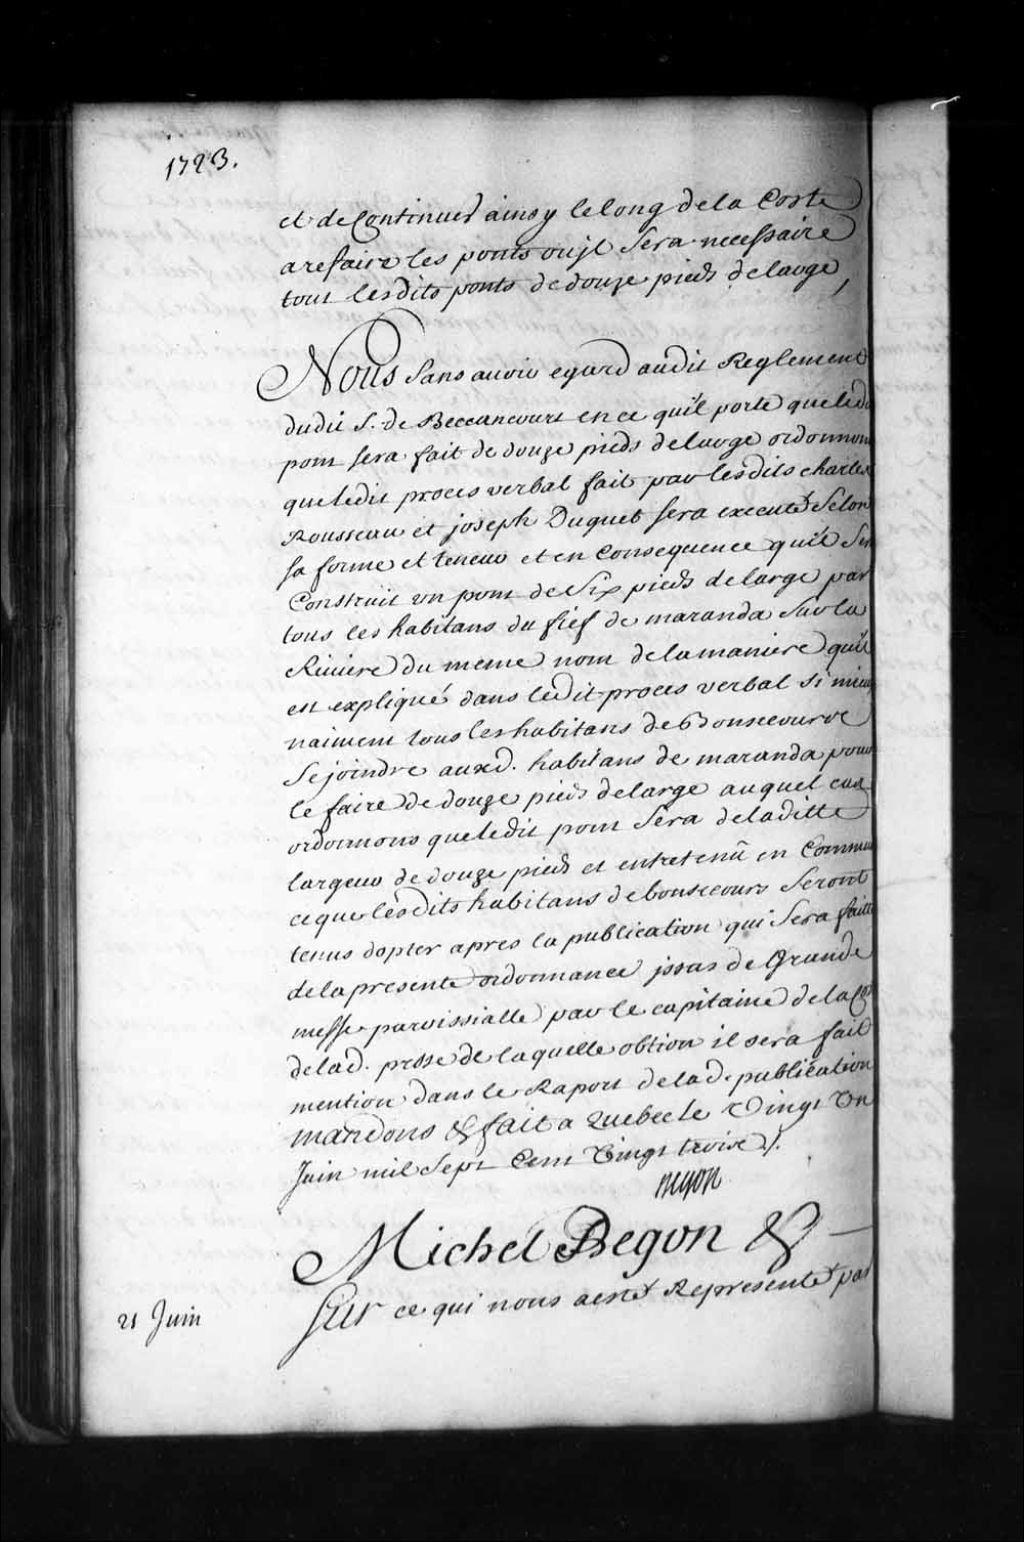 1723.
et de Continuer ainsy le long de la Coste
a refaire les ponts ou jl sera necessaire
tout lesdits ponts de douze pieds de large,
Nous sans avoir egard audit Reglement
dudit S. de Beccancourt en ce qu'il porte que led
pont sera fait de douze pieds de large ordonnons
que ledit proces verbal fait par lesdits charles
Rousseau et joseph Duquet sera executé selon
sa forme et teneur et en Consequence qu'il sera
Construit un pont de Six pieds de large par
tous les habitans du fief de maranda sur la
Riviere du meme nom de la maniere qu'il
est expliqué dans ledit proces verbal si mieux
naiment tous les habitans de Bonsecours
se joindre auxd. habitans de maranda pour
le faire de douze pieds de large auquel cas
ordonnons que ledit pont sera de laditte
largeur de douze pieds et entretenû en Commun
ce que lesdits habitans de bonsecours seront
tenus dopter apres la publication qui sera faitte
de la presente ordonnance jssue de Grande
messe paroissialle par le capitaine de la
de lad. prsse de laquelle obtion il sera fait
mention dans le Raport de lad. publication
mandons & fait a Quebec le Vingt Un
Juin mil Sept Cent Vingt trois ./.
Begon
Michel Begon &
21 Juin
Sur ce qui nous a esté Representé par